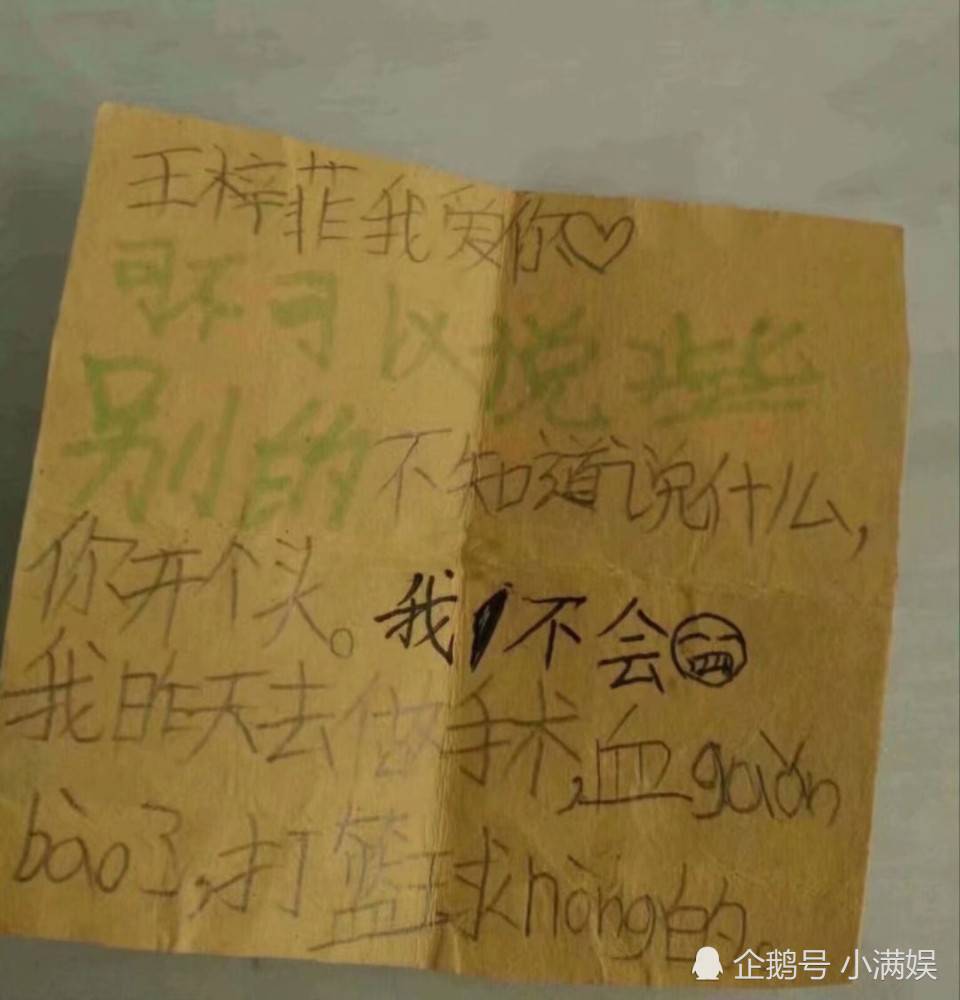 王梓菲我爱你♡
可不可以说些
别的不知道说什么,
你开个头。我不会
我昨天去做手术,血guǎn
bào了,打篮球nòng的。
企鹅号 小满娱